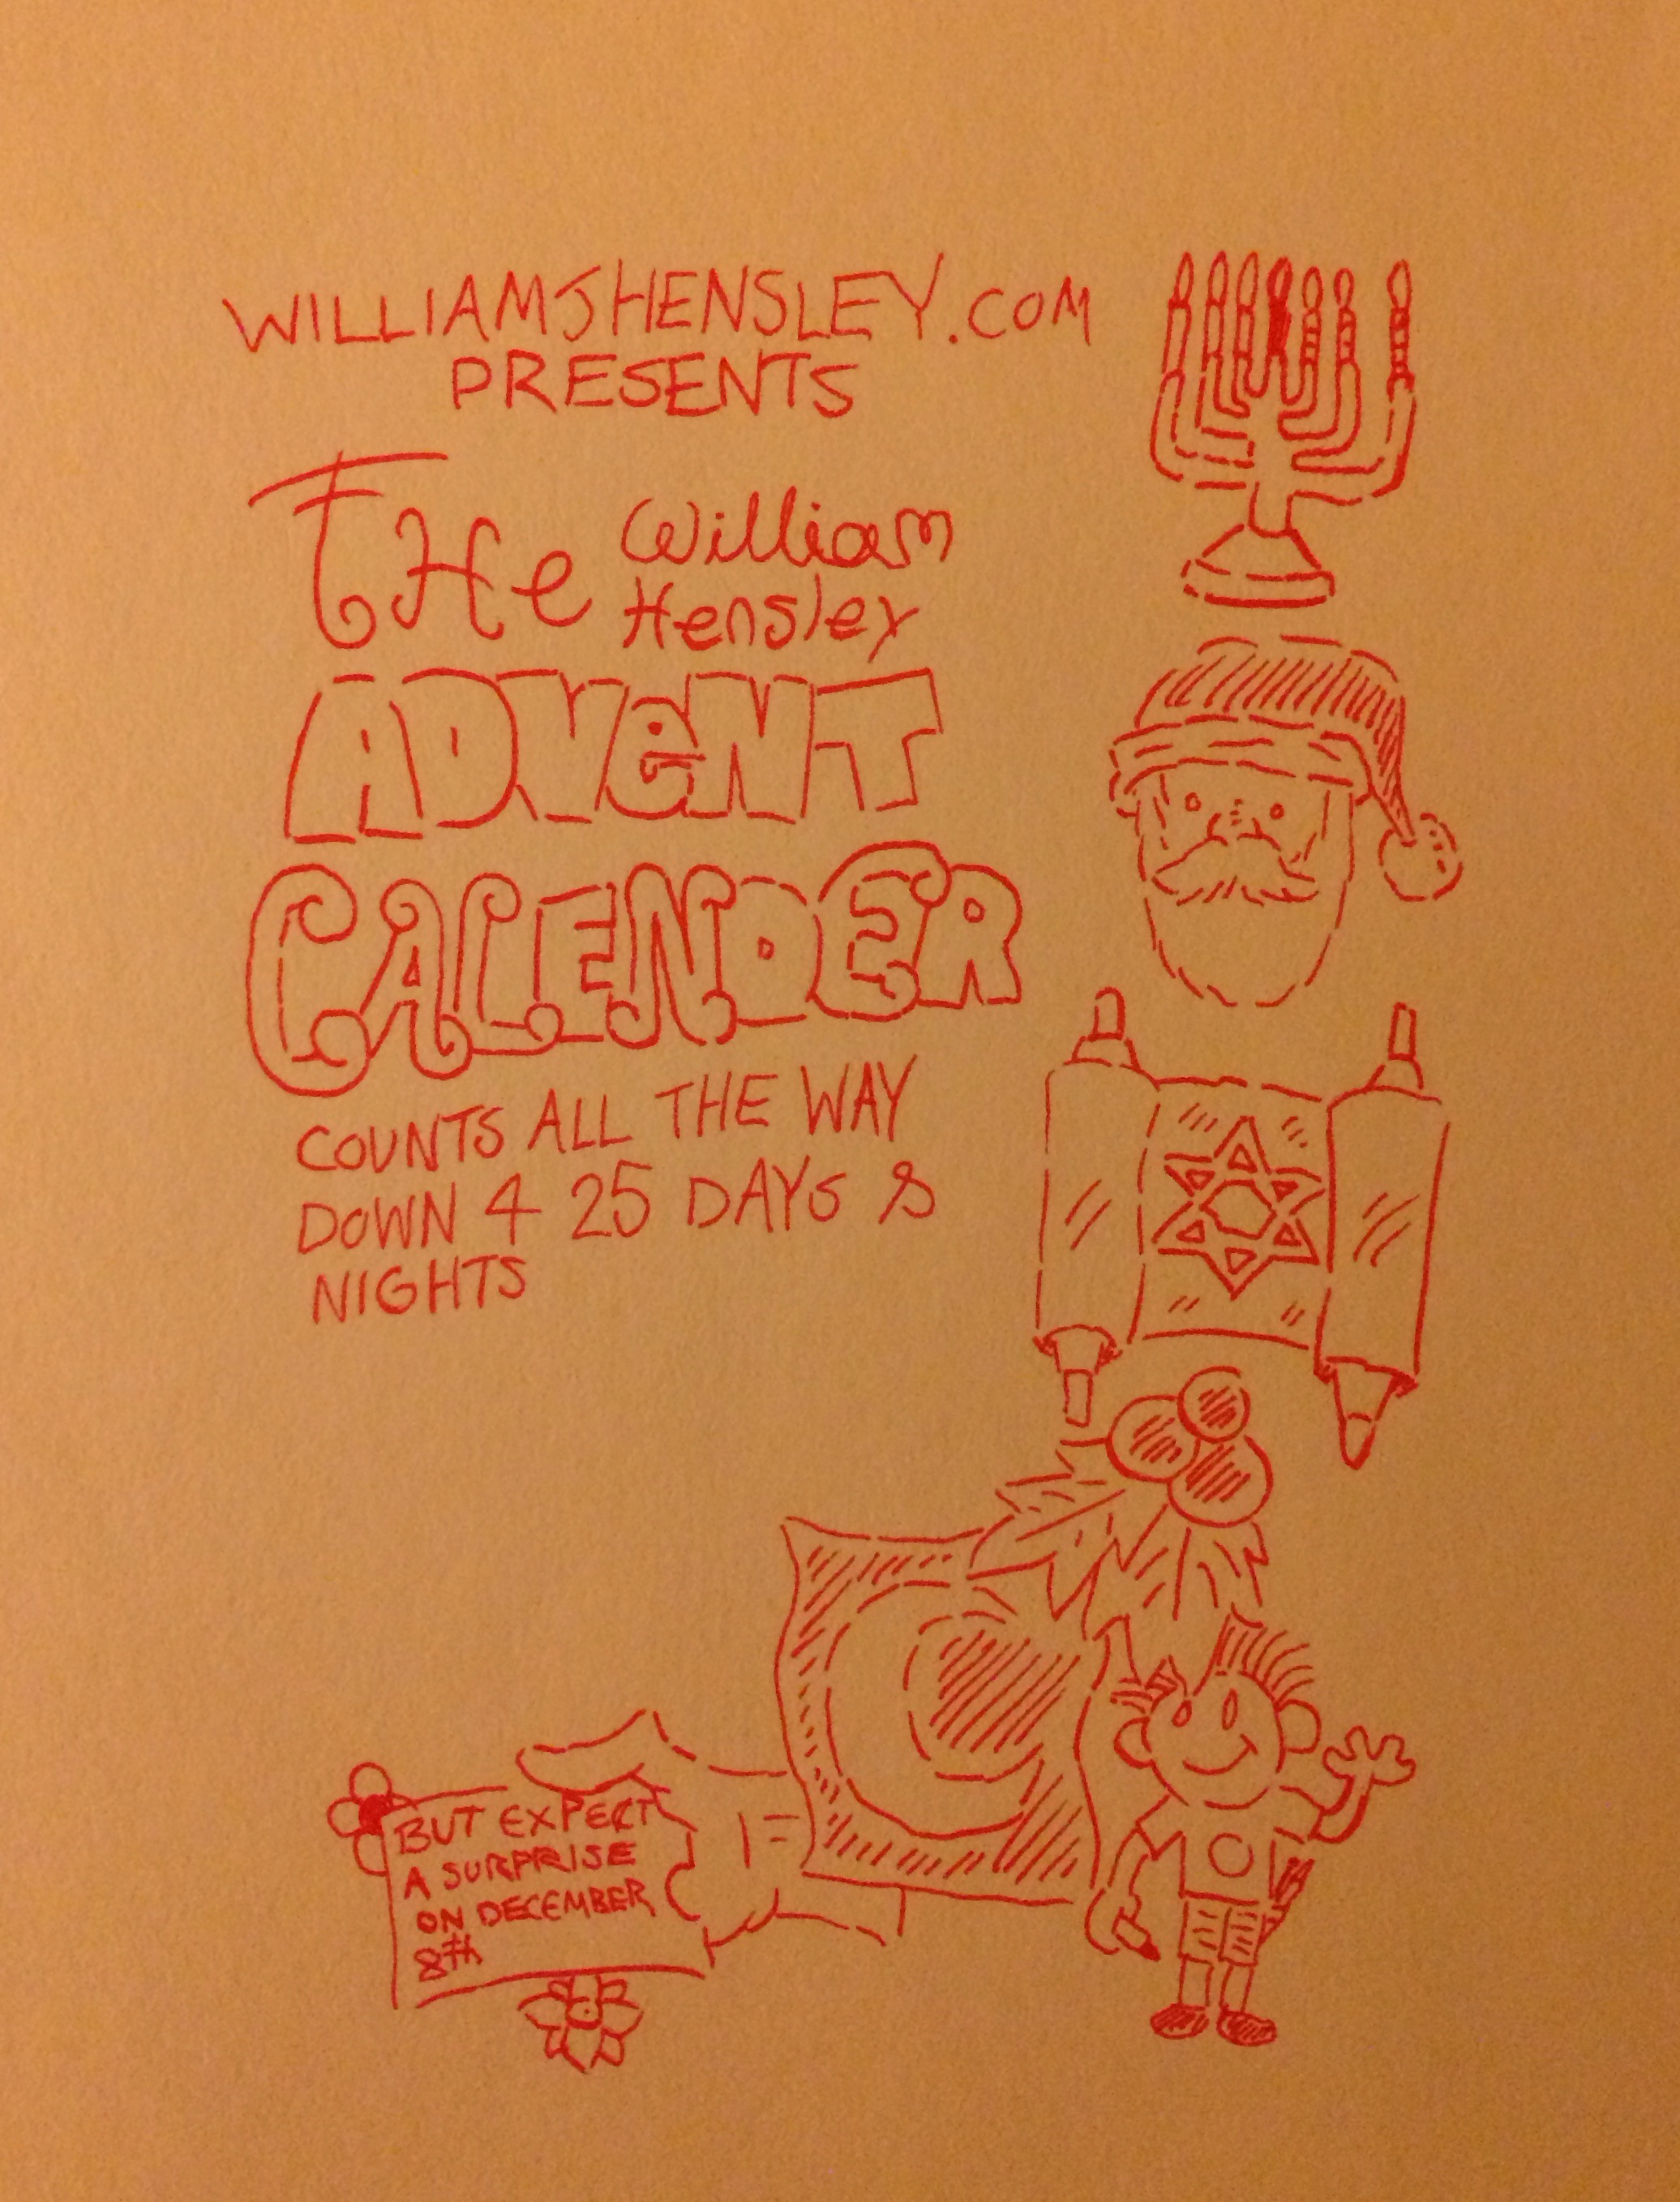 WILLIAMJHENSLEY.COM
PRESENTS
THe William
Hensley
ADVeNT
CALENDER
COUNTS ALL THE WAY
DOWN 4 25 DAYS &
NIGHTS
BUT EXPECT
A SURPRISE
ON DECEMBER
8TH